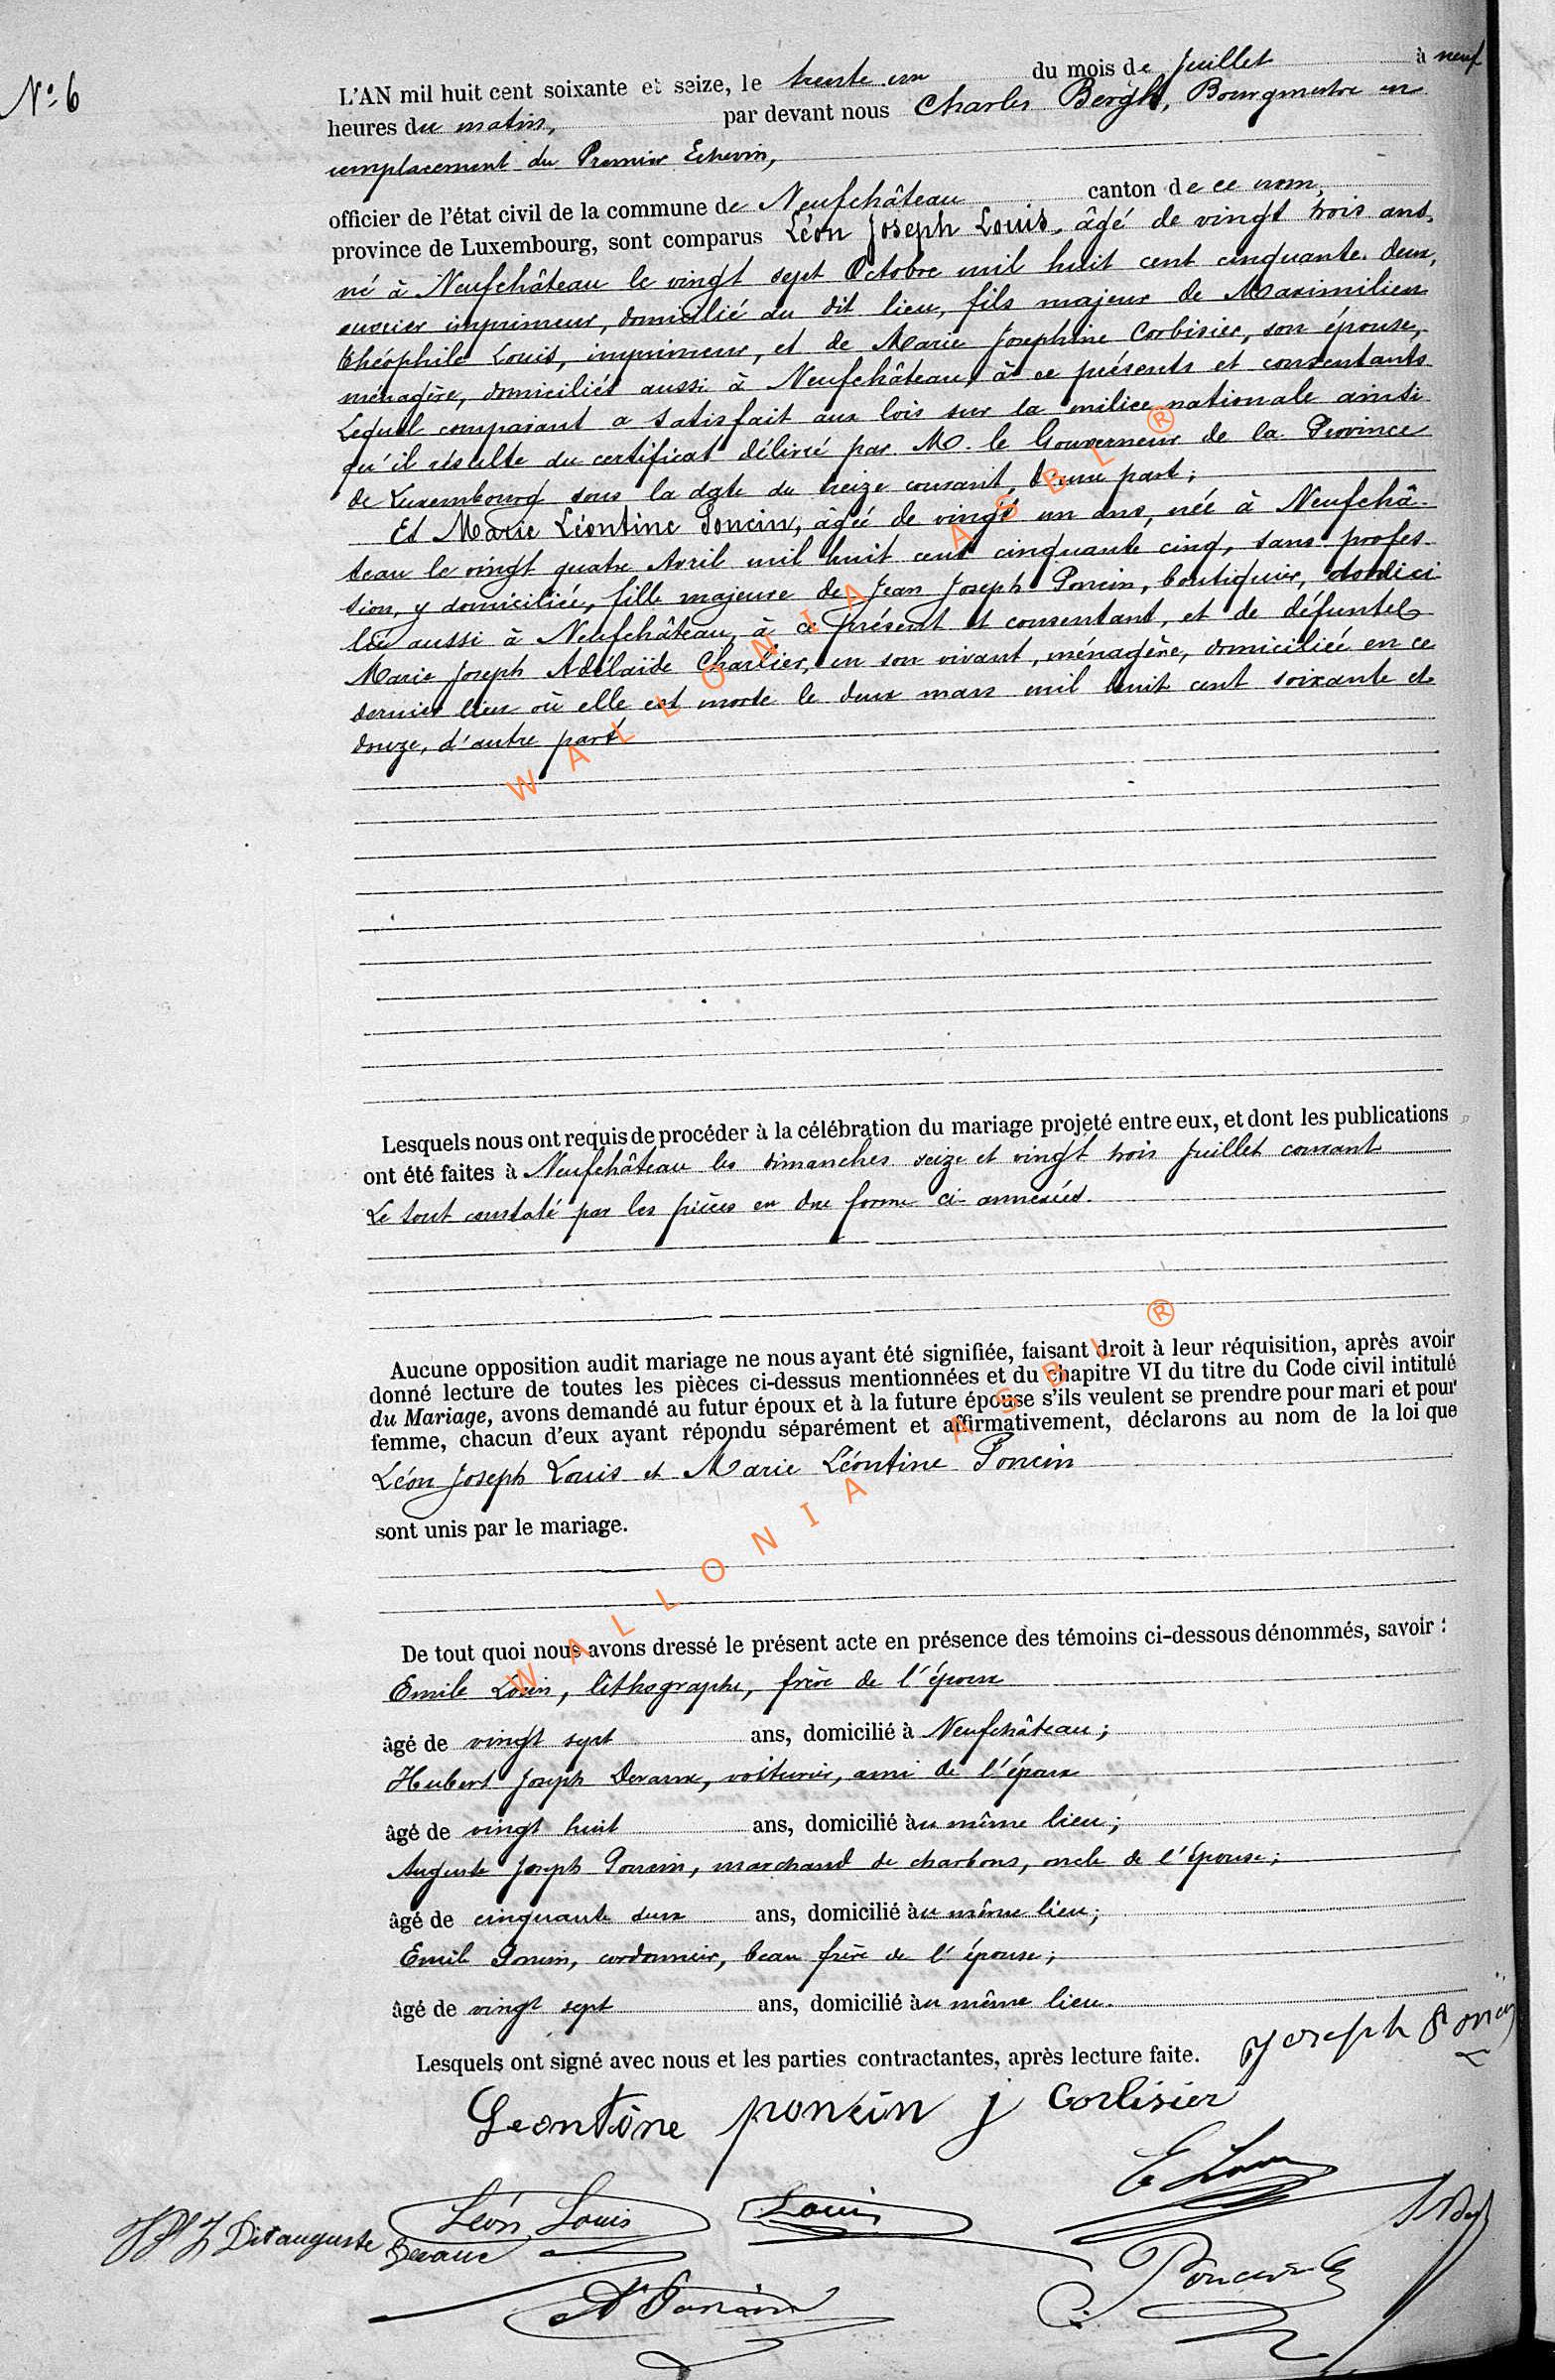 N° 6
L'AN mil huit cent soixante et seize, le trente un du mois de Juillet à neuf
heures du matin, par devant nous Charles Bergh, Bourgmestre en
remplacement du Premier Echevin,
officier de l'état civil de la commune de Neufchâteau canton de ce nom,
province de Luxembourg, sont comparus Léon Joseph Louis, âgé de vingt trois ans,
né à Neufchâteau le vingt sept Octobre mil huit cent cinquante deux,
ouvrier imprimeur, domicilié au dit lieu, fils majeur de Maximilien
Théophile Louis, imprimeur, et de Marie Josephine Corbisier, son épouse,
ménagère, domiciliés aussi à Neufchâteau, à ce présents et consentants
Lequel comparant a satisfait aux lois sur la milice nationale ainsi
qu'il résulte du certificat délivré par M. le Gouverneur de la Province
de Luxembourg sous la date du treize courant, d'une part;
Et Marie Léontine Poncin, âgée de vingt un ans, née à Neufchâ-
teau le vingt quatre Avril mil huit cent cinquante cinq, sans profes-
sion, y domiciliée, fille majeure de Jean Joseph Poncin, boutiquier, domici
lié aussi à Neufchâteau, à ce présent et consentant, et de défunte
Marie Joseph Adélaïde Charlier, en son vivant, ménagère, domiciliée en ce
dernier lieu où elle est morte le deux mars mil huit cent soixante et
douze, d'autre part
Lesquels nous ont requis de procéder à la célébration du mariage projeté entre eux, et dont les publications
ont été faites à Neufchâteau les dimanches seize et vingt trois Juillet courant
Le tout constaté par les pièces en due forme ci-annexées.
Aucune opposition audit mariage ne nous ayant été signifiée, faisant droit à leur réquisition, après avoir
donné lecture de toutes les pièces ci-dessus mentionnées et du chapitre VI du titre du Code civil intitulé
du Mariage, avons demandé au futur époux et à la future épouse s'ils veulent se prendre pour mari et pour
femme, chacun d'eux ayant répondu séparément et affirmativement, déclarons au nom de la loi que
Léon Joseph Louis et Marie Léontine Poncin
sont unis par le mariage.
De tout quoi nous avons dressé le présent acte en présence des témoins ci-dessous dénommés, savoir :
Emile Louis, lithographe, frère de l'époux
âgé de vingt sept ans, domicilié à Neufchâteau;
Hubert Joseph Devaux, voiturier, ami de l'époux
âgé de vingt huit ans, domicilié au même lieu;
Auguste Joseph Poncin, marchand de charbons, oncle de l'épouse;
âgé de cinquante deux ans, domicilié au même lieu;
Emile Poncin, cordonnier, beau frère de l'épouse;
âgé de vingt sept ans, domicilié au même lieu.
Lesquels ont signé avec nous et les parties contractantes, après lecture faite.
Joseph Poncin
Leontine poncin j Corbisier
E Louis
Léon Louis Louis
Dit auguste Devaux
A Poncin Poncin E
WALLONIA ASBL ®
WALLONIA ASBL ®